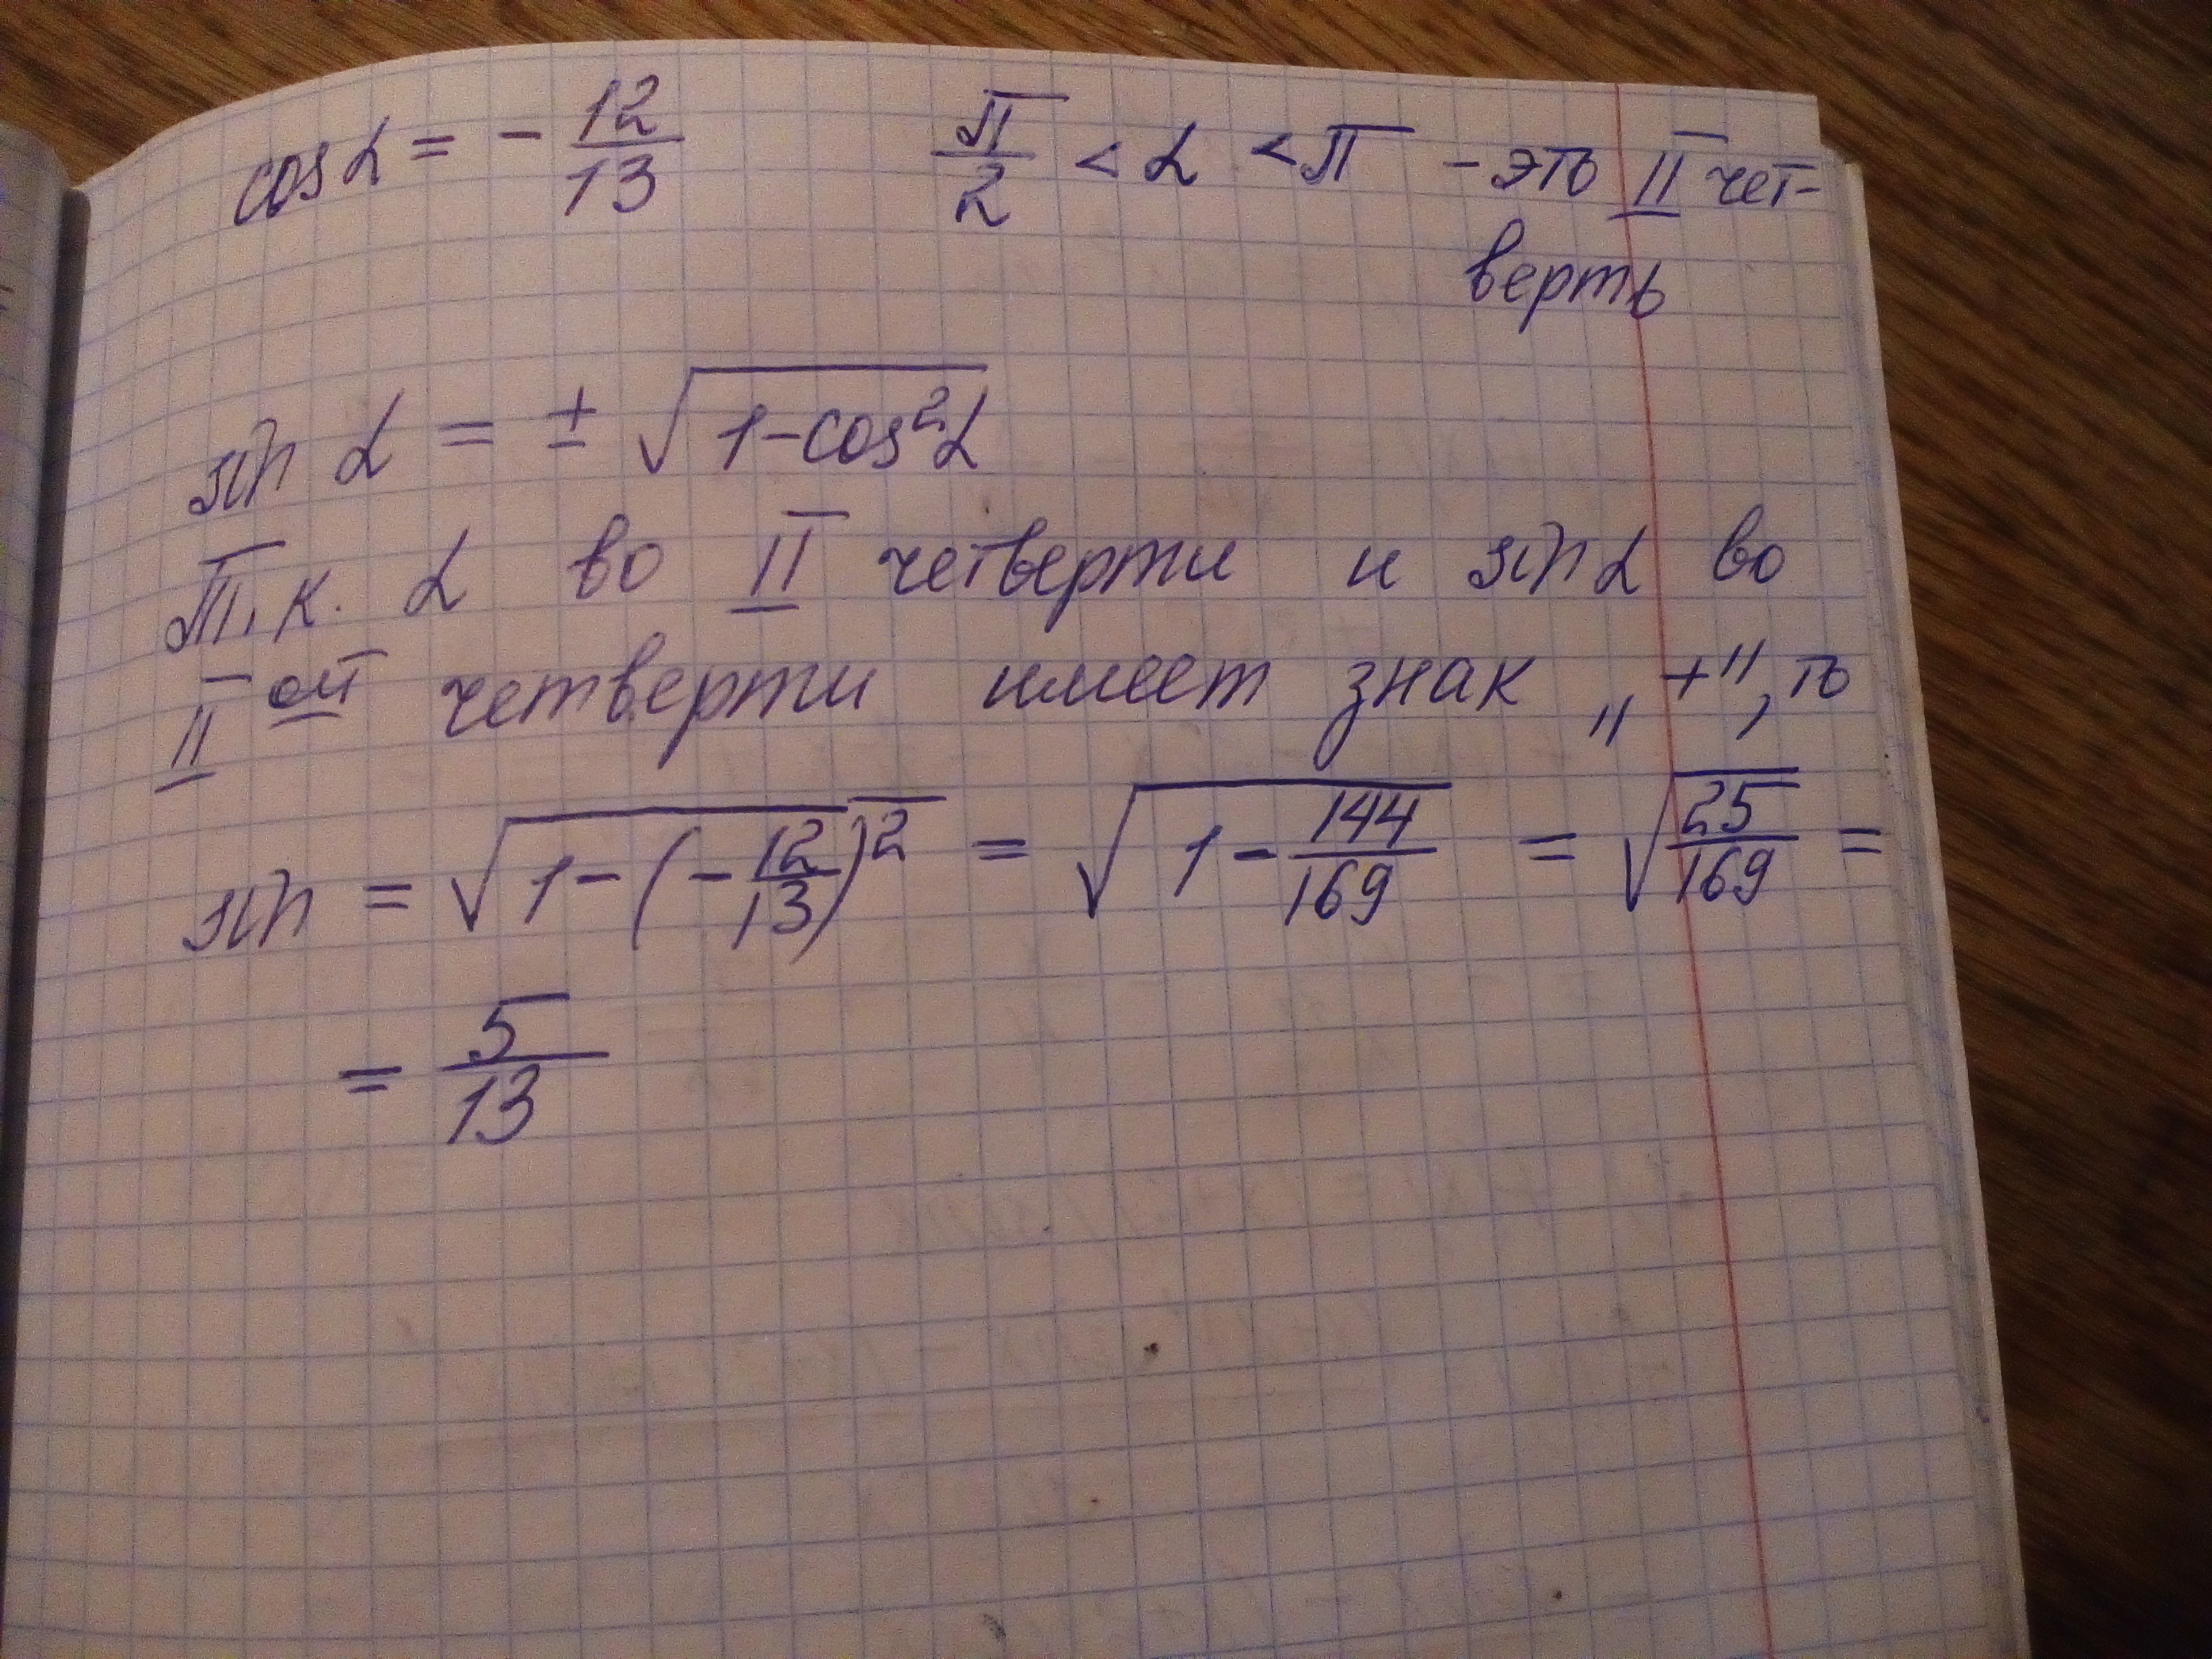 cos α = - 12/13    π/2 < α < π - это II чет-
верть
sin α = ± √(1-cos²α)
Т.к. α во II четверти и sin α во
II ой четверти имеет знак „+", то
sin = √(1-(-12/13)²) = √(1-144/169) = √(25/169) =
= 5/13